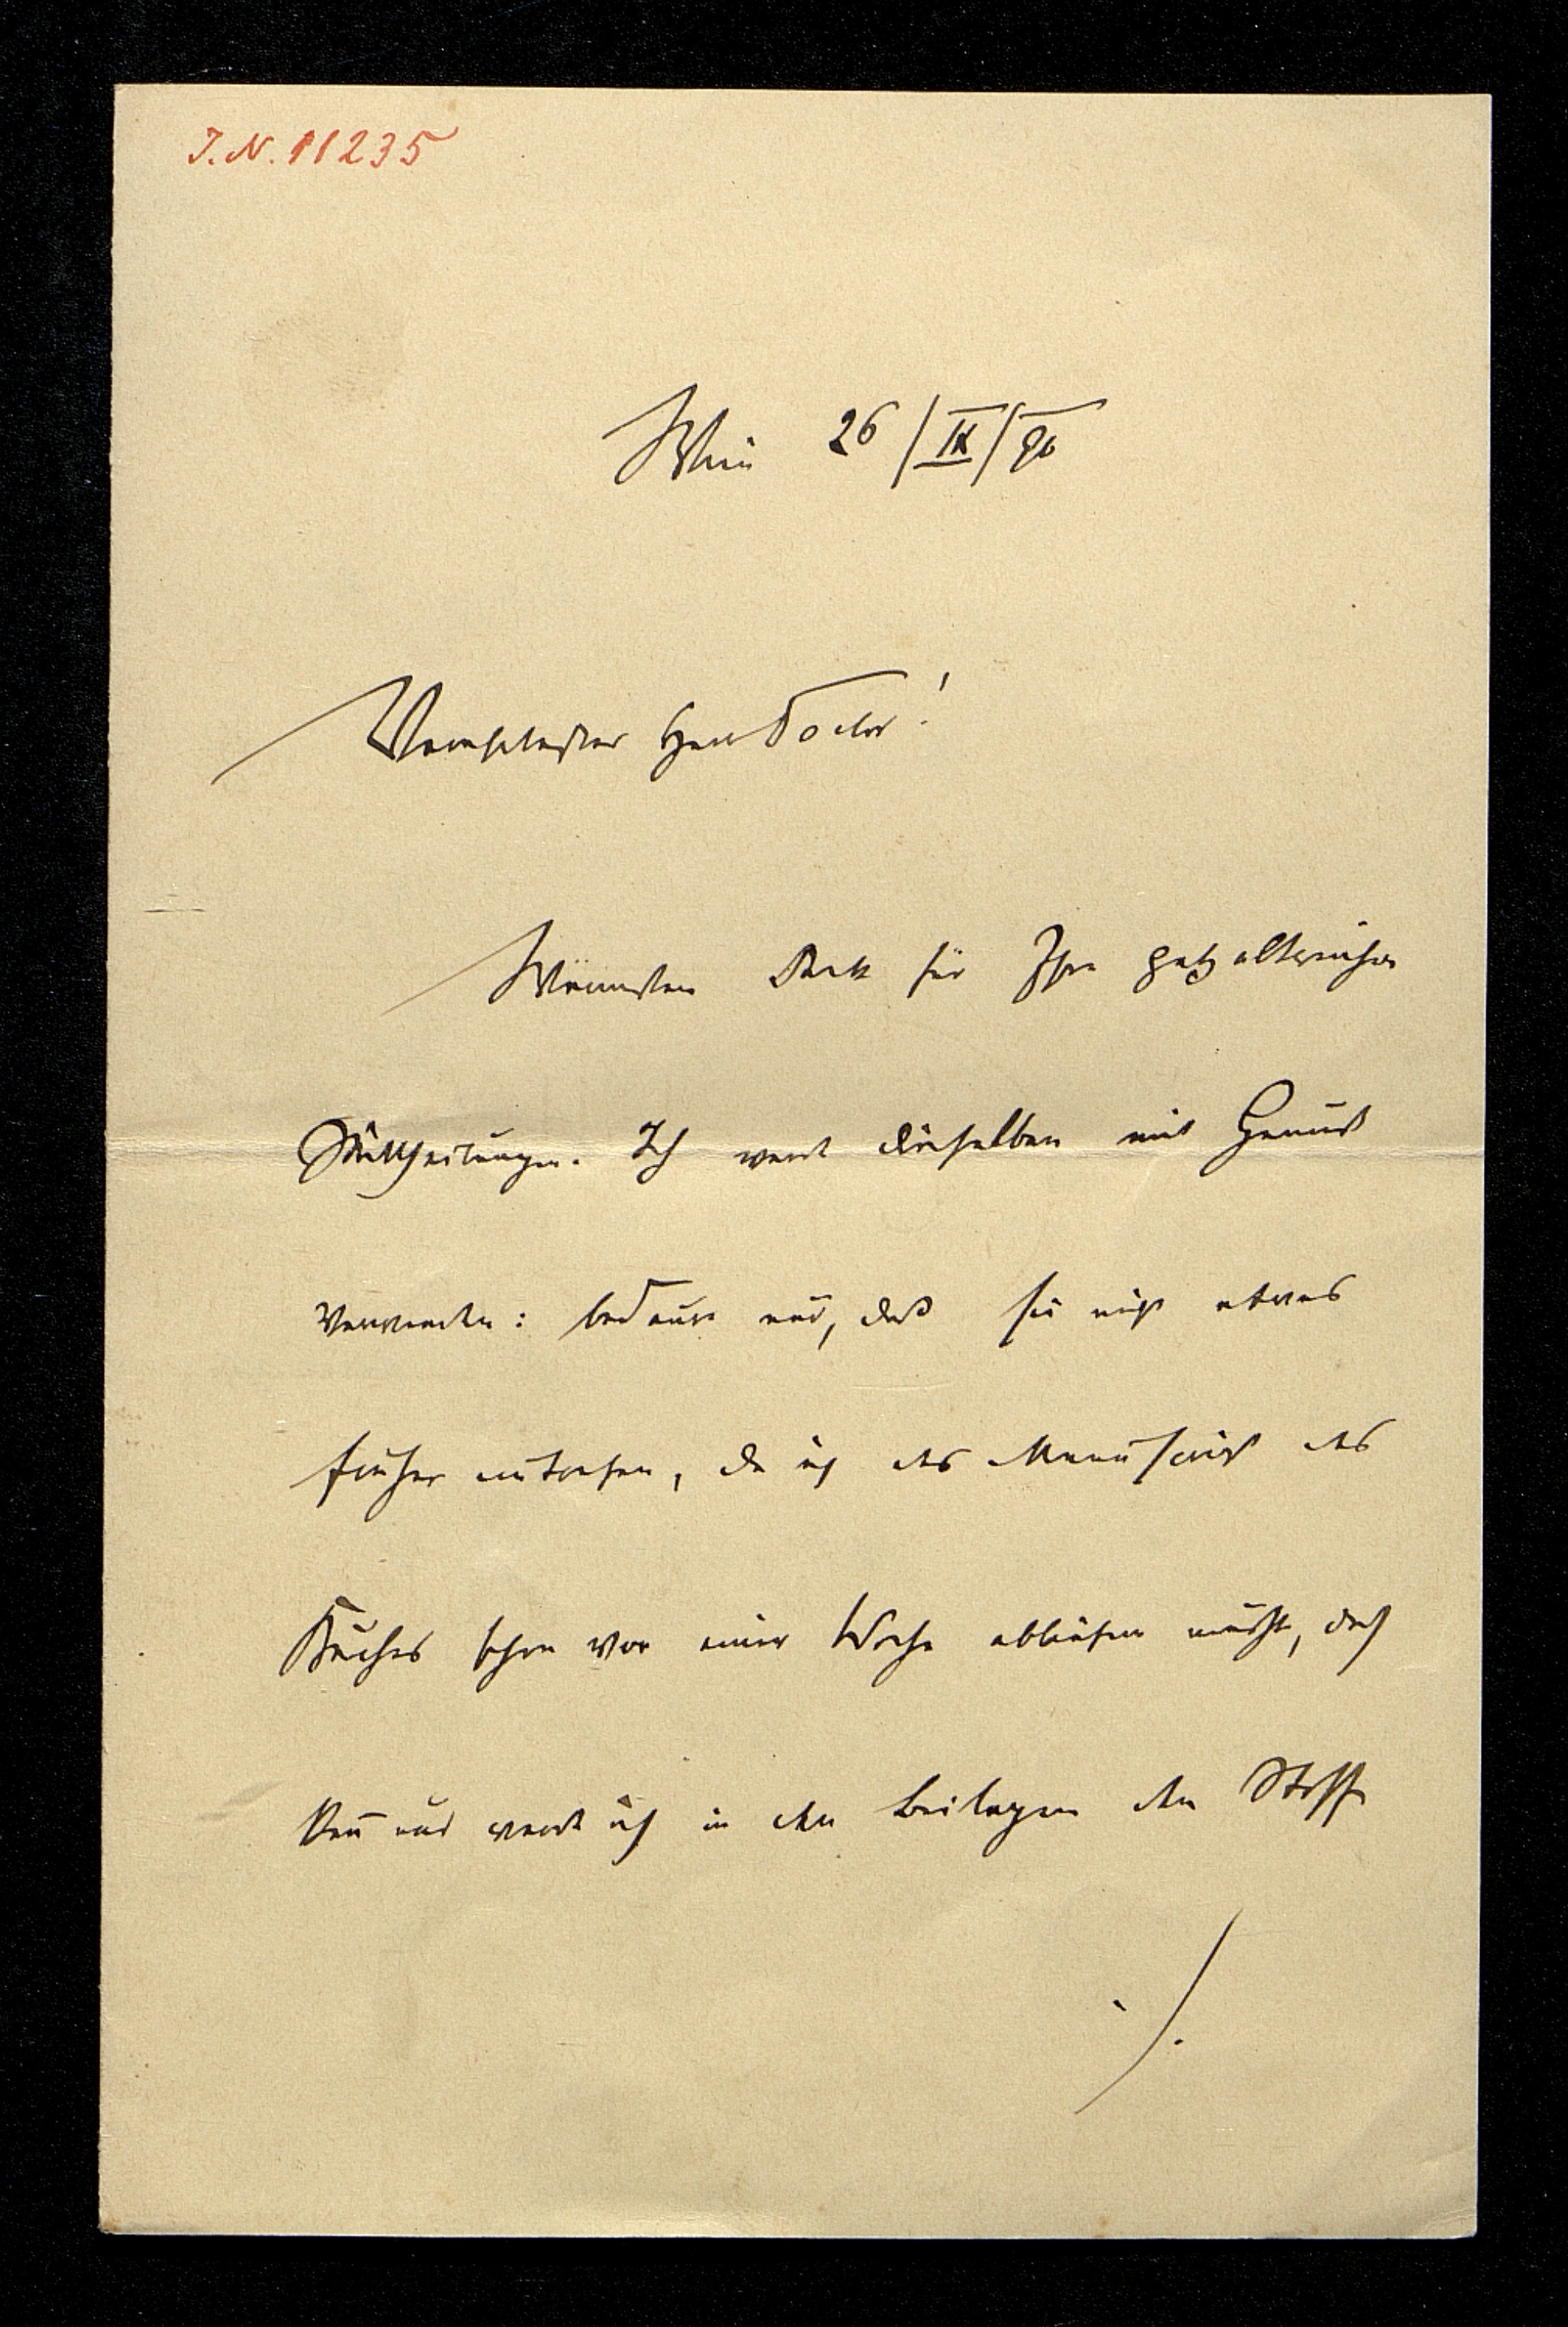 J. N. 11235
Wien 26/IX/96
Verehrtester Herr Doctor!
Wärmsten Dank für Ihre
Mittheilungen. Ich werde dieselben mit Genuß
verwenden: bedaure nur, daß sie nicht etwas
früher eintrafen, da ich das Manuscript des
Buches schon vor einer Woche abliefern mußte, doch
kann und werde ich in den Beilagen den Stoff
./.